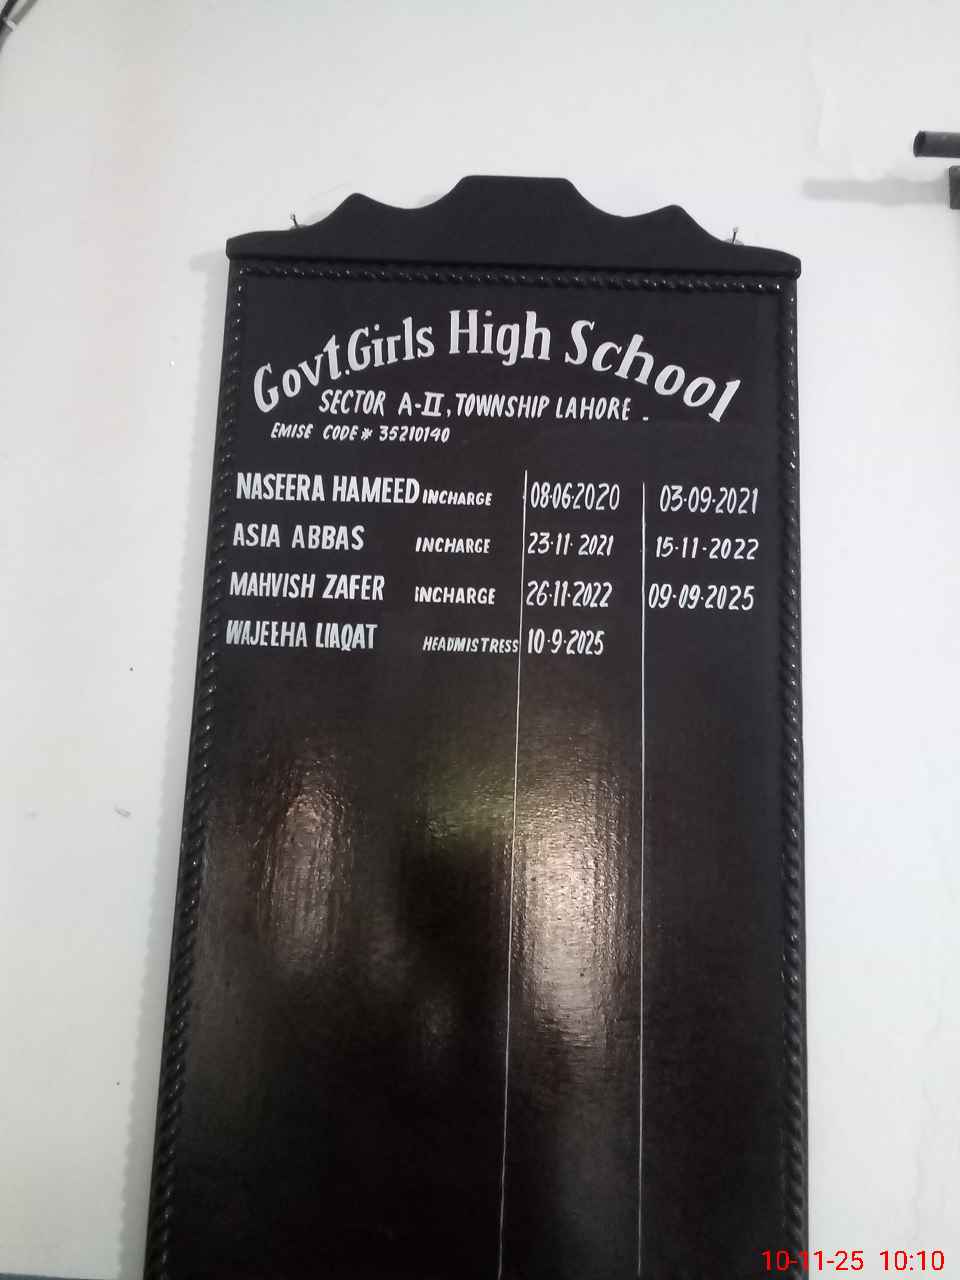 Govt.Girls High School
SECTOR A-II, TOWNSHIP LAHORE -
EMISE CODE * 35210190
NASEERA HAMEED INCHARGE 08·06·2020 03·09·2021
ASIA ABBAS INCHARGE 23·11·2021 15·11·2022
MAHVISH ZAFER INCHARGE 26·11·2022 09·09·2025
WAJEEHA LIAQAT HEADMISTRESS 10·9·2025
10-11-25 10:10